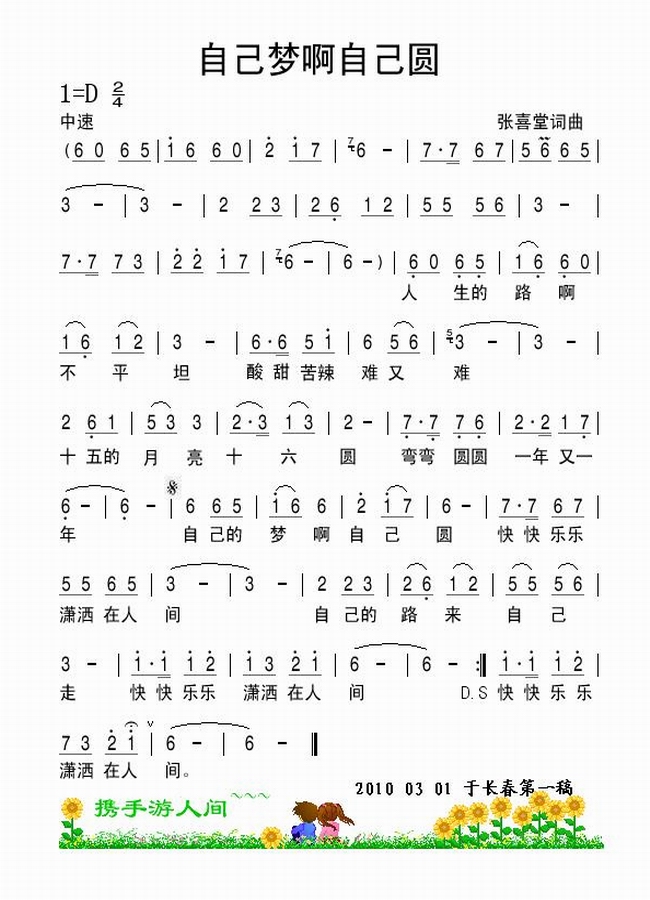 自己梦啊自己圆
1=D 2/4
中速 张喜堂词曲
(6 0 6 5 | 1 6 6 0 | 2 1 7 | 7 6 - | 7·7 6 7 | 5 6 6 5 |
3 - | 3 - | 2 2 3 | 2 6 1 2 | 5 5 5 6 | 3 - |
7·7 7 3 | 2 2 1 7 | 7 6 - | 6 - ) | 6 0 6 5 | 1 6 6 0 |
人 生的 路 啊
1 6 1 2 | 3 - | 6·6 5 1 | 6 5 6 | 5 3 - | 3 - |
不 平 坦 酸 甜 苦辣 难 又 难
2 6 1 | 5 3 3 | 2·3 1 3 | 2 - | 7·7 7 6 | 2·2 1 7 |
十 五的 月 亮 十 六 圆 弯弯 圆圆 一年 又一
6 - | 6 - | 6 6 5 | 1 6 6 | 2 1 7 | 6 - | 7·7 6 7 |
年 自 己的 梦 啊 自 己 圆 快 快 乐乐
5 5 6 5 | 3 - | 3 - | 2 2 3 | 2 6 1 2 | 5 5 5 6 |
潇洒 在人 间 自 己的 路 来 自 己
3 - | 1·1 1 2 | 1 3 2 1 | 6 - | 6 - :‖ 1·1 1 2 |
走 快 快 乐乐 潇洒 在人 间 D.S 快 快 乐 乐
7 3 2 1 | 6 - | 6 - ‖
潇洒 在人 间。
2010 03 01 于长春第一稿
携手游人间~~~